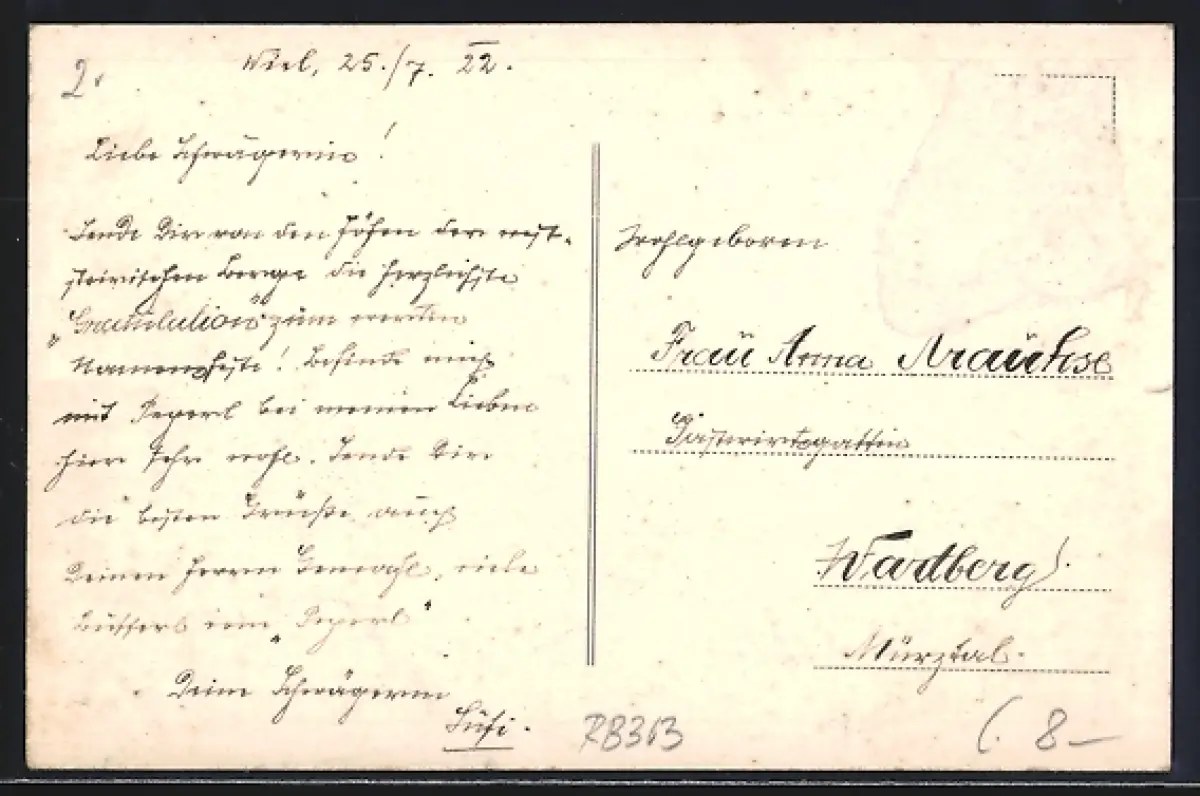 2.
Wiel, 25./7. 22.
Liebe Schwägerin!
Sende Dir von den Höhen der west-
steirischen Berge die herzlichste
"Gratulation" zum werten
Namensfeste! Befinde mich
mit Peperl bei meinen Lieben
hier sehr wohl. Sende Dir
die besten Grüße auch
Deinen Herrn Gemahl, viele
Busserl vom "Peperl"
Deine Schwägerin
Wohlgeboren
Frau Anna
Gastwirtsgattin
Wartberg
Mürztal.
RB313
8-